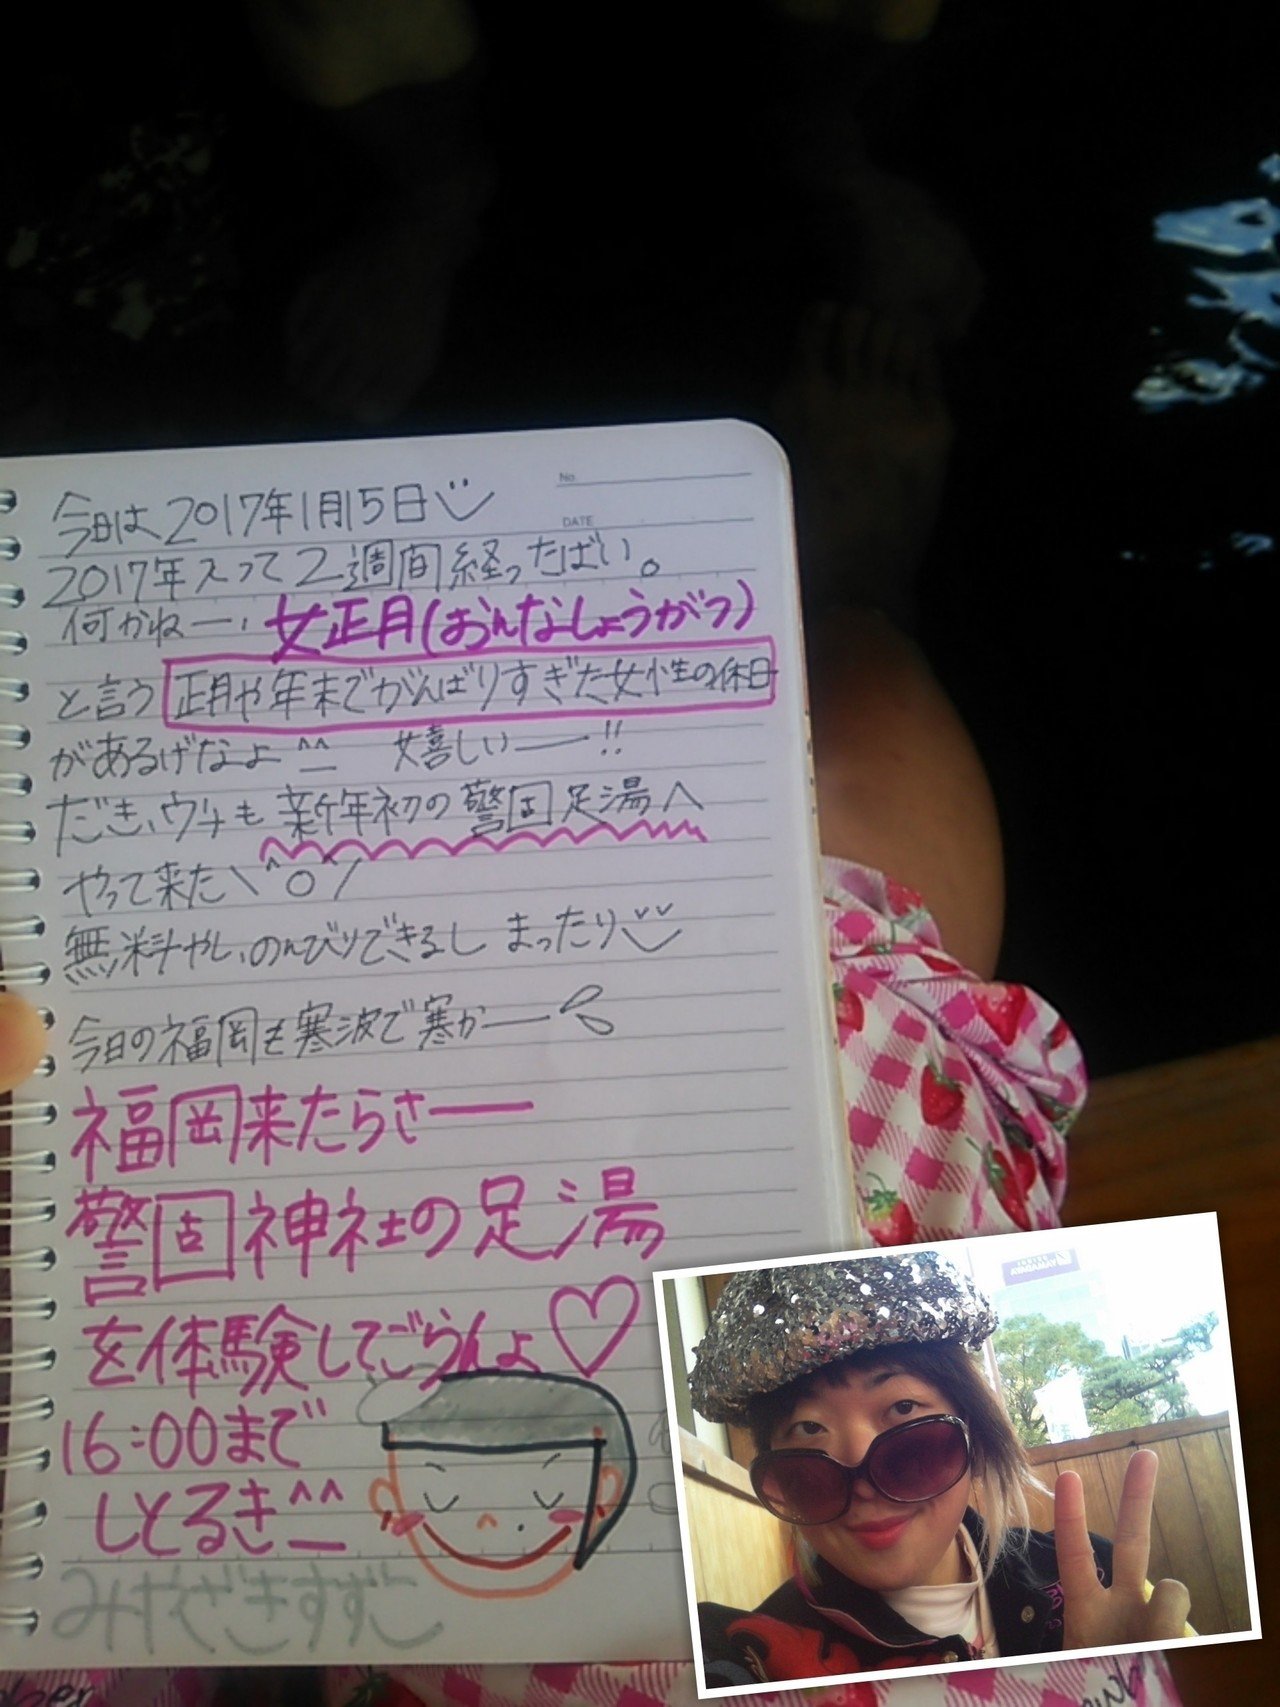 No.
DATE
今日は2017年1月15日
2017年入って2週間経ったばい。
何かねー、女正月(おんなしょうがつ)
と言う正月や年末でがんばりすぎた女性の休日
があるげなよ^^ 嬉しいー!!
だき、ウチも新年初の警固足湯へ
やって来た\^o^/
無料やし、のんびりできるし まったり
今日の福岡も寒波で寒かー
福岡来たらさー
警固神社の足湯
を体験してごらんよ♡
16:00まで
しとるき^^
みやざきすずこ
YAMADAYA